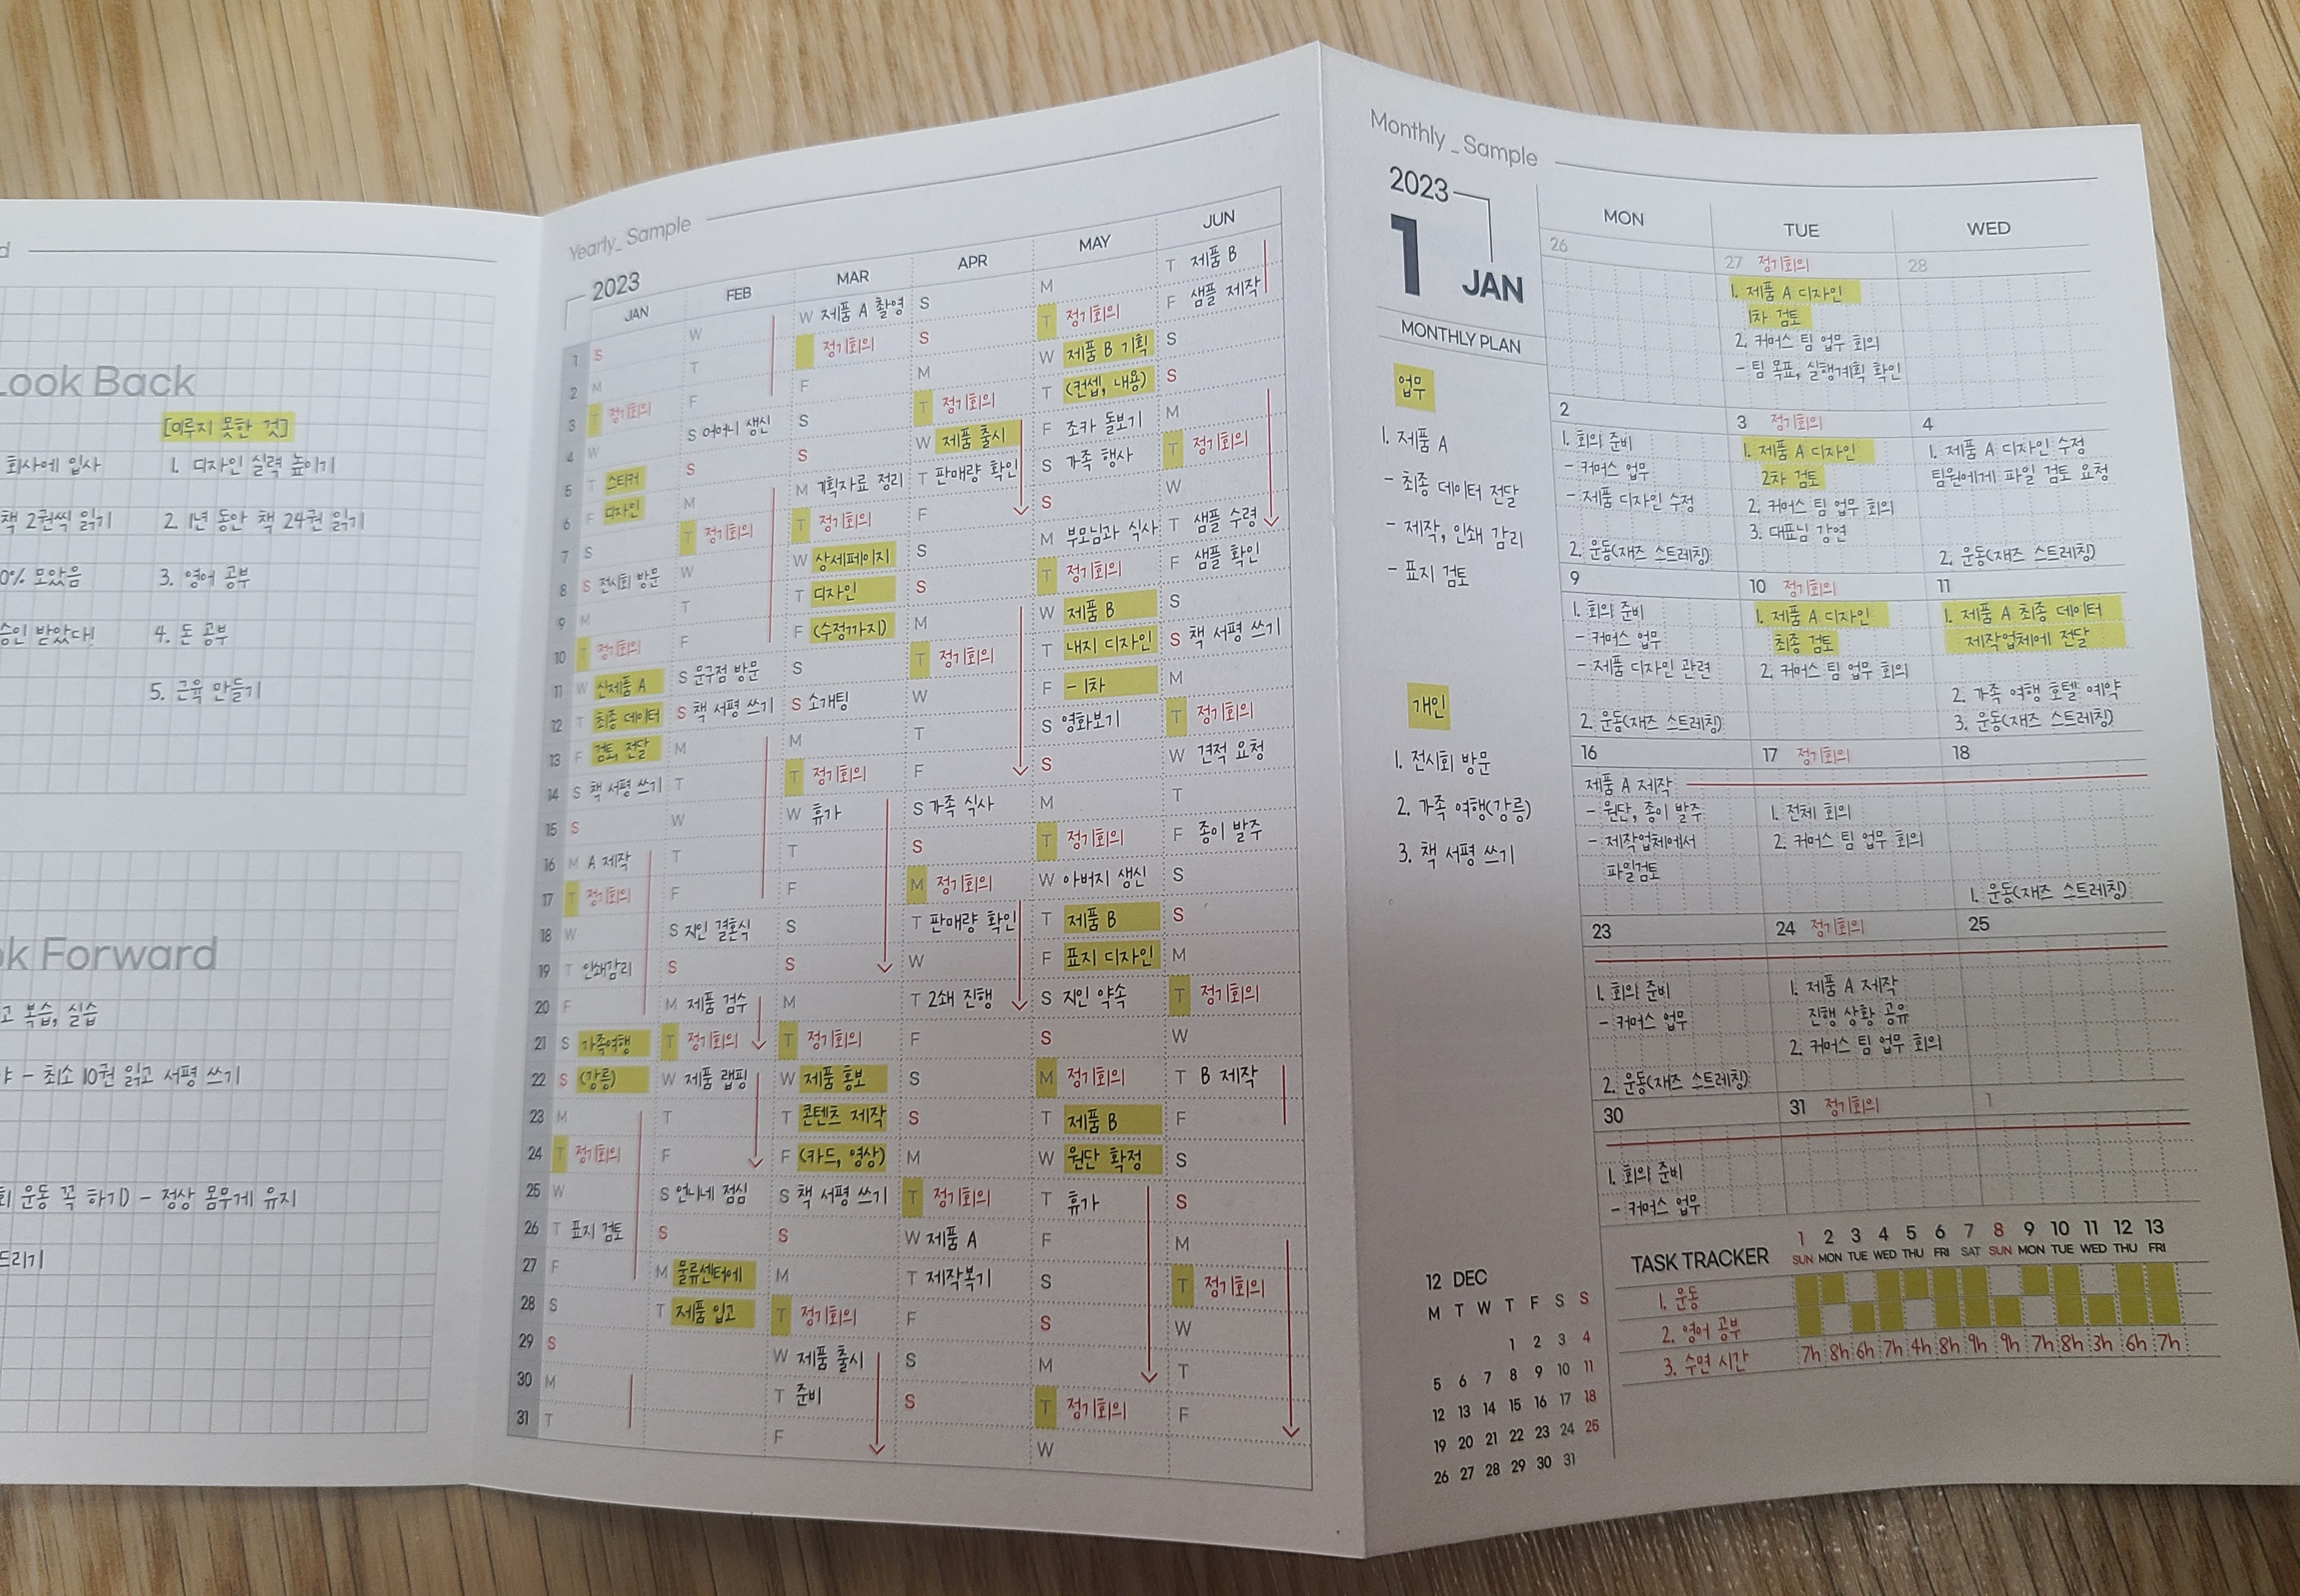 ook Back
[이루지 못한 것]
회사에 입사
1. 디자인 실력 높이기
책 2권씩 읽기
2. 1년 동안 책 24권 읽기
0% 모았음
3. 영어 공부
승인 받았다!
4. 돈 공부
5. 근육 만들기
k Forward
고 복습, 실습
- 최소 10권 읽고 서평 쓰기
회 운동 꼭 하기) - 정상 몸무게 유지
드리기
Yearly_Sample
2023
JAN FEB MAR APR MAY JUN
1 S W W 제품 A 촬영 S M T 제품 B
2 M T 정기회의 S T 정기회의 F 샘플 제작
3 T 정기회의 F F M W 제품 B 기획 S
4 W S 어머니 생신 S T 정기회의 T (컨셉, 내용) S
5 T 스티커 S S W 제품 출시 F 조카 돌보기 M
6 F 디자인 M M 기획자료 정리 T 판매량 확인 S 가족 행사 T 정기회의
7 S T 정기회의 T 정기회의 F S W
8 S 전시회 방문 W W 상세페이지 S M 부모님과 식사 T 샘플 수령
9 M T T 디자인 S T 정기회의 F 샘플 확인
10 T 정기회의 F F (수정까지) M W 제품 B S
11 W 신제품 A S 문구점 방문 S T 정기회의 T 내지 디자인 S 책 서평 쓰기
12 T 최종 데이터 S 책 서평 쓰기 S 소개팅 W F - 1차 M
13 F 검토, 전달 M M T S 영화보기 T 정기회의
14 S 책 서평 쓰기 T T 정기회의 F S W 견적 요청
15 S W W 휴가 S 가족 식사 M T
16 M A 제작 T T S T 정기회의 F 종이 발주
17 T 정기회의 F F M 정기회의 W 아버지 생신 S
18 W S 지인 결혼식 S T 판매량 확인 T 제품 B S
19 T 인쇄감리 S S W F 표지 디자인 M
20 F M 제품 검수 M T 2쇄 진행 S 지인 약속 T 정기회의
21 S 가족여행 T 정기회의 T 정기회의 F S W
22 S (강릉) W 제품 랩핑 W 제품 홍보 S M 정기회의 T B 제작
23 M T T 콘텐츠 제작 S T 제품 B F
24 T 정기회의 F F (카드, 영상) M W 원단 확정 S
25 W S 언니네 점심 S 책 서평 쓰기 T 정기회의 T 휴가 S
26 T 표지 검토 S S W 제품 A F M
27 F M 물류센터에 M T 제작복기 S T 정기회의
28 S T 제품 입고 T 정기회의 F S W
29 S W 제품 출시 S M T
30 M T 준비 S T 정기회의 F
31 T F W
Monthly_Sample
2023
1 JAN
MONTHLY PLAN
업무
1. 제품 A
- 최종 데이터 전달
- 제작, 인쇄 감리
- 표지 검토
개인
1. 전시회 방문
2. 가족 여행(강릉)
3. 책 서평 쓰기
12 DEC
M T W T F S S
1 2 3 4
5 6 7 8 9 10 11
12 13 14 15 16 17 18
19 20 21 22 23 24 25
26 27 28 29 30 31
MON TUE WED
26
27 정기회의
1. 제품 A 디자인
1차 검토
2. 커머스 팀 업무 회의
- 팀 목표, 실행계획 확인
28
2
1. 회의 준비
- 커머스 업무
- 제품 디자인 수정
2. 운동(재즈 스트레칭)
3 정기회의
1. 제품 A 디자인
2차 검토
2. 커머스 팀 업무 회의
3. 대표님 강연
4
1. 제품 A 디자인 수정
팀원에게 파일 검토 요청
2. 운동(재즈 스트레칭)
9
1. 회의 준비
- 커머스 업무
- 제품 디자인 관련
2. 운동(재즈 스트레칭)
10 정기회의
1. 제품 A 디자인
최종 검토
2. 커머스 팀 업무 회의
11
1. 제품 A 최종 데이터
제작업체에 전달
2. 가족 여행 호텔 예약
3. 운동(재즈 스트레칭)
16
제품 A 제작
- 원단, 종이 발주
- 제작업체에서
파일검토
17 정기회의
1. 전체 회의
2. 커머스 팀 업무 회의
18
1. 운동(재즈 스트레칭)
23
1. 회의 준비
- 커머스 업무
2. 운동(재즈 스트레칭)
24 정기회의
1. 제품 A 제작
진행 상황 공유
2. 커머스 팀 업무 회의
25
30
1. 회의 준비
- 커머스 업무
31 정기회의
1
TASK TRACKER
1 2 3 4 5 6 7 8 9 10 11 12 13
SUN MON TUE WED THU FRI SAT SUN MON TUE WED THU FRI
1. 운동
2. 영어 공부
3. 수면 시간 7h 8h 6h 7h 4h 8h 9h 9h 7h 8h 3h 6h 7h